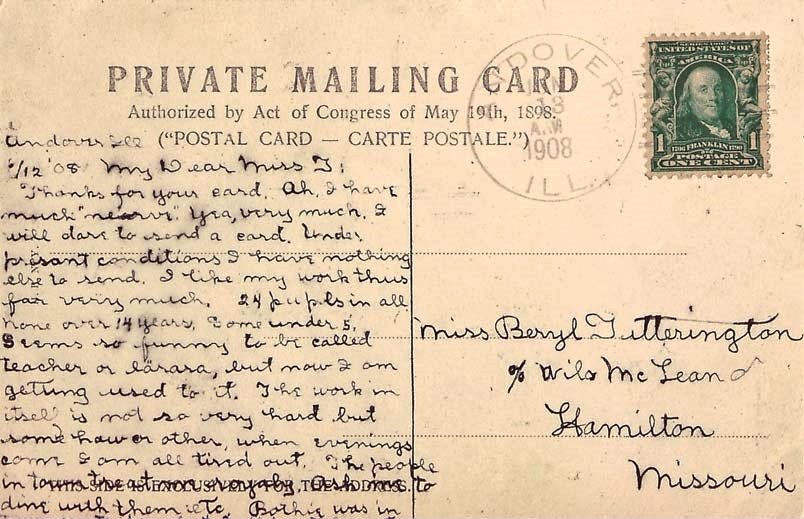 PRIVATE MAILING CARD
Authorized by Act of Congress of May 19th, 1898.
("POSTAL CARD — CARTE POSTALE.")
ANDOVER,
JAN
13
A.M
1908
ILL.
SERIES 1902
UNITED STATES OF
AMERICA
1 1706 FRANKLIN 1790 1
POSTAGE
ONE CENT
Andover Ill
1/12 '08 My Dear Miss T:
Thanks for your card. Ah, I have
much "nearve". Yea, very much. I
will dare to send a card. Under
presant conditions I have nothing
else to send. I like my work thus
far very much. 24 pupils in all
none over 14 years, some under 5.
Seems so funny to be called
teacher or lärara, but now I am
getting used to it. The work in
itself is not so very hard but
some how or other, when evenings
come I am all tired out. The people
in town treat me royaly, ask me to
dine with them etc. Bothie was in
THIS SIDE IS EXCLUSIVELY FOR THE ADDRESS.
Miss Beryl Tutterington
% Wils McLean
Hamilton
Missouri